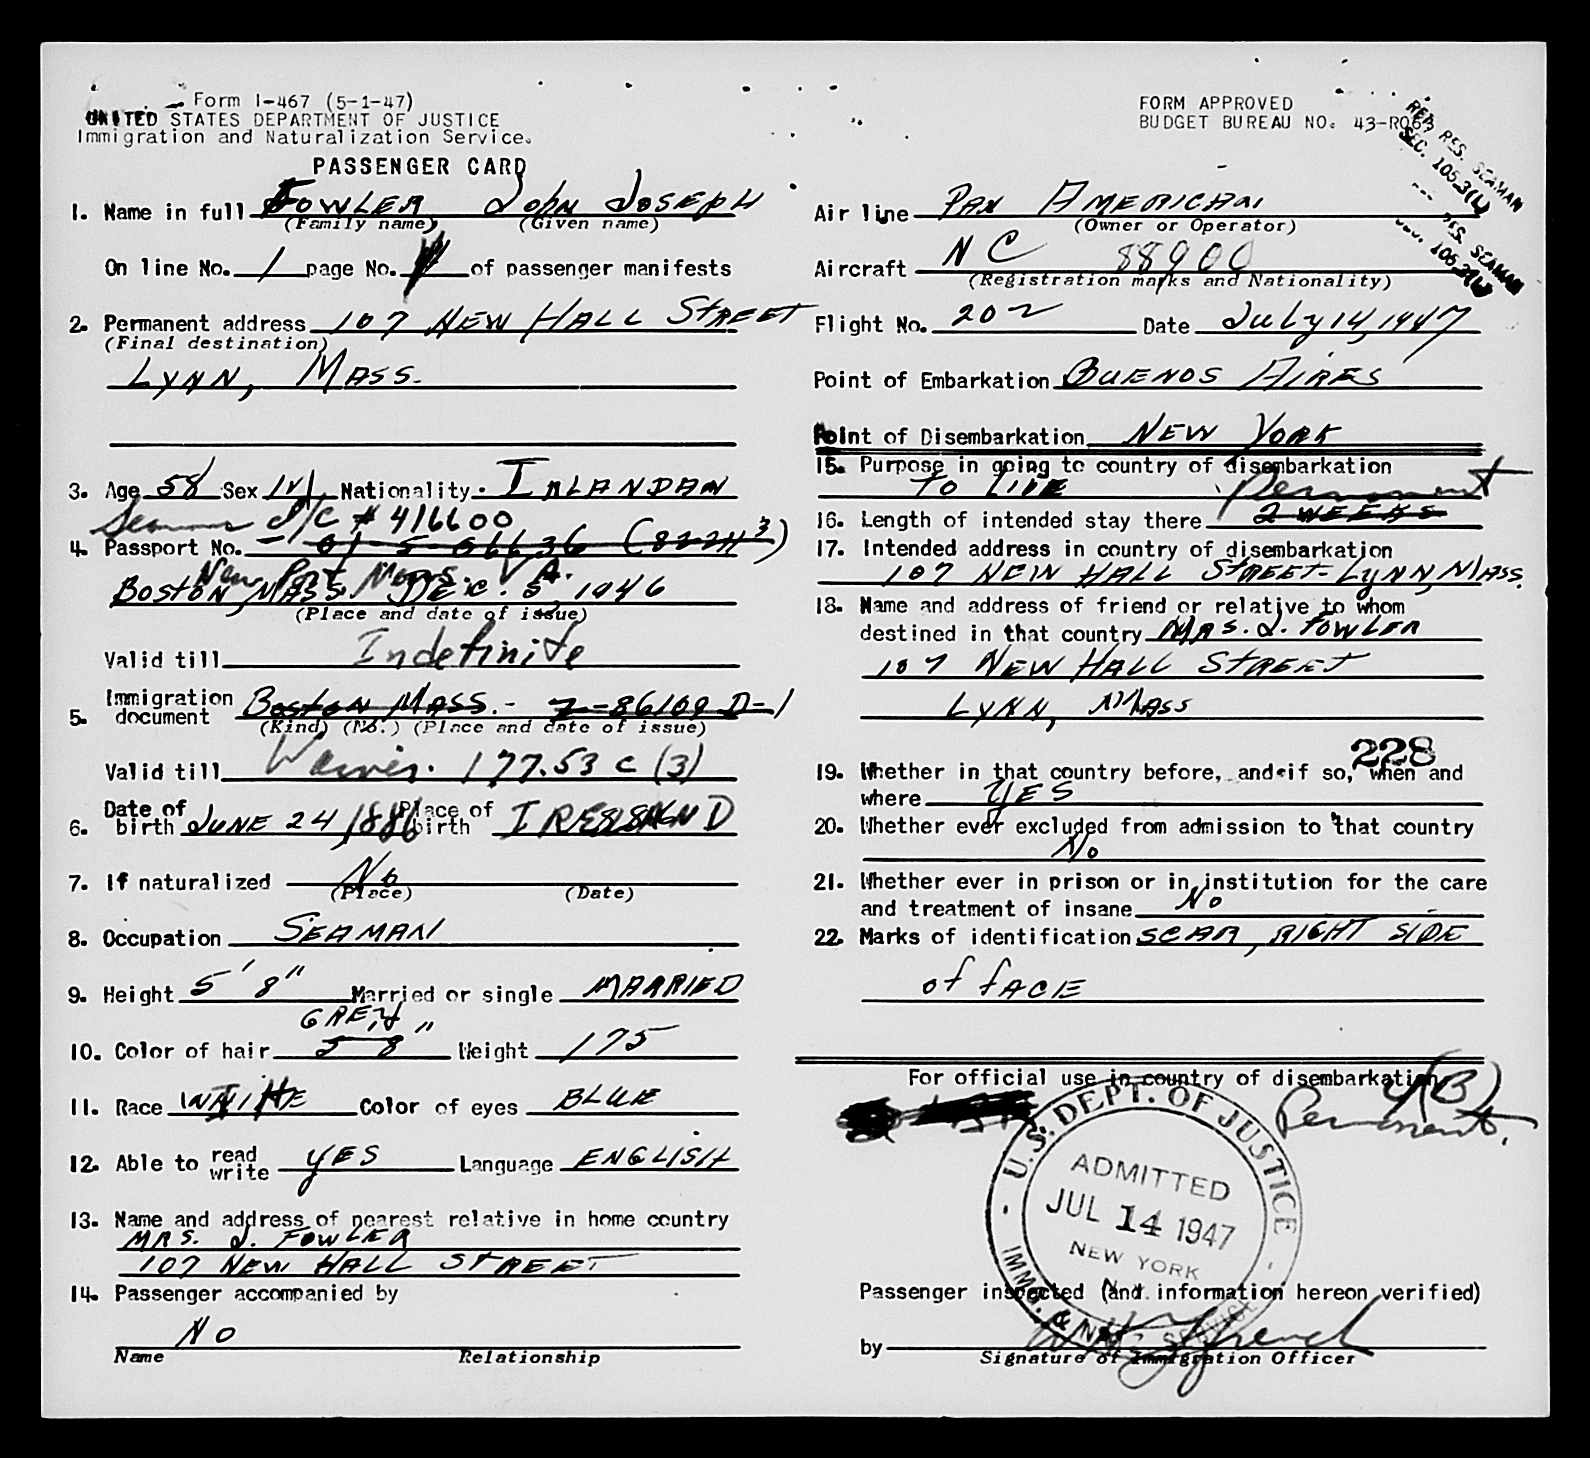 Form I-467 (5-1-47)
UNITED STATES DEPARTMENT OF JUSTICE
Immigration and Naturalization Service.
PASSENGER CARD
1. Name in full FOWLER John Joseph
(Family name) (Given name)
On line No. 1 page No. of passenger manifests
2. Permanent address 107 NEW HALL STREET
(Final destination)
LYNN, MASS.
3. Age 58 Sex M Nationality IRLANDAN
Seaman I/C # 416600
4. Passport No. 01-5-066636 (822113)
New Port News. VA.
BOSTON, MASS. DEC. 5, 1946
(Place and date of issue)
Valid till Indefinite
5. Immigration document BOSTON MASS. - Z-86109 D-1
(Kind) (No.) (Place and date of issue)
Valid till Waiver. 177.53 c (3)
6. Date of birth JUNE 24 1886 Place of birth IRELAND
7. If naturalized No
(Place) (Date)
8. Occupation SEAMAN
9. Height 5' 8" Married or single MARRIED
GREY
10. Color of hair 5' 8" Weight 175
11. Race WHITE Color of eyes BLUE
12. Able to read write YES Language ENGLISH
13. Name and address of nearest relative in home country
MRS. J. FOWLER
107 NEW HALL STREET
14. Passenger accompanied by
NO
Name Relationship
FORM APPROVED
BUDGET BUREAU NO. 43-R063
RES. SEAMAN
SEC. 105.3(4)
RES. SEAMAN
Air line PAN AMERICAN
(Owner or Operator)
Aircraft NC 88900
(Registration marks and Nationality)
Flight No. 202 Date July 14, 1947
Point of Embarkation BUENOS AIRES
Point of Disembarkation NEW YORK
15. Purpose in going to country of disembarkation
TO LIVE
Permanent
16. Length of intended stay there 2 WEEKS
17. Intended address in country of disembarkation
107 NEW HALL STREET-LYNN, MASS.
18. Name and address of friend or relative to whom
destined in that country MRS. J. FOWLER
107 NEW HALL STREET
LYNN, MASS
228
19. Whether in that country before, and if so, when and
where YES
20. Whether ever excluded from admission to that country
No
21. Whether ever in prison or in institution for the care
and treatment of insane No
22. Marks of identification SCAR, RIGHT SIDE
of FACE
For official use in country of disembarkation
4(B)
Permanent.
U.S. DEPT. OF JUSTICE
ADMITTED
JUL 14 1947
NEW YORK
N.Y.
IMMI. & NAT. SERVICE
Passenger inspected (and information hereon verified)
by
Signature of Immigration Officer